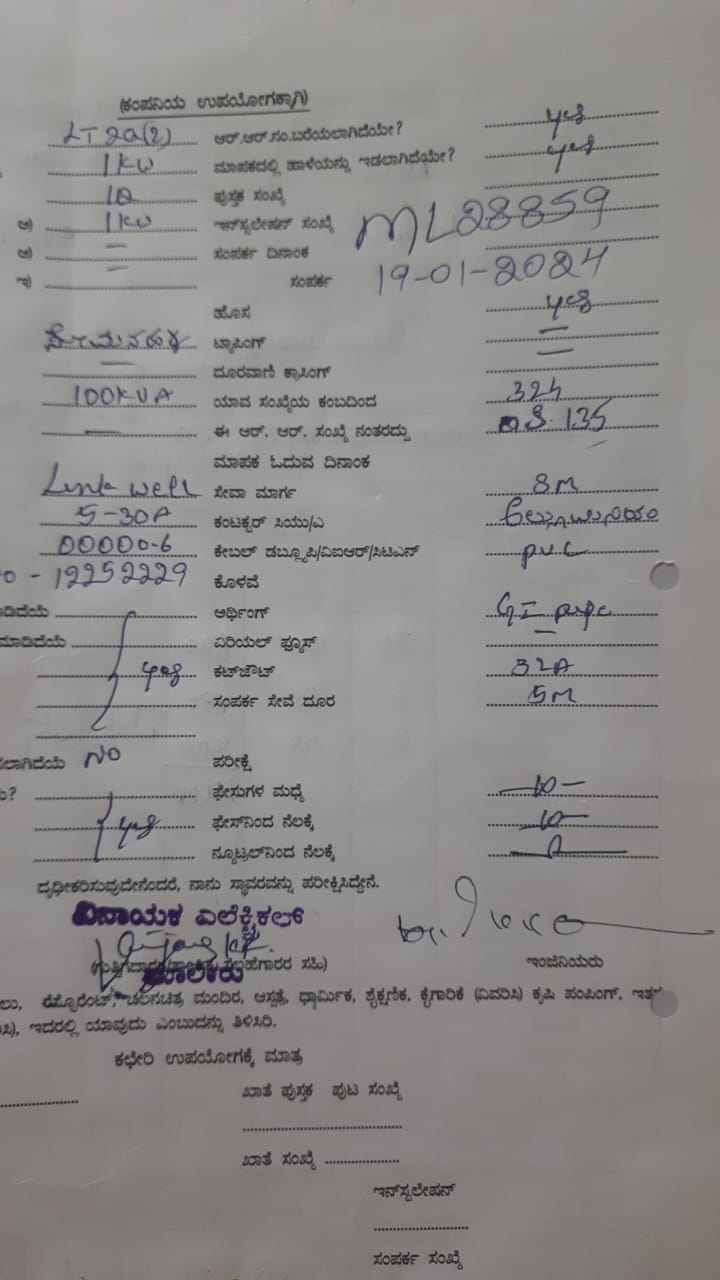 (ಕಂಪನಿಯ ಉಪಯೋಗಕ್ಕಾಗಿ)
LT 2a(2) ಆರ್.ಆರ್.ನಂ.ಬರೆಯಲಾಗಿದೆಯೇ? yes
1KW ಮಾಪಕದಲ್ಲಿ ಹಾಳೆಯನ್ನು ಇಡಲಾಗಿದೆಯೇ? yes
ಪುಸ್ತಕ ಸಂಖ್ಯೆ
ಅ) 1KW ಇನ್‌ಸ್ಟಲೇಷನ್ ಸಂಖ್ಯೆ ML28859
ಆ) – ಸಂಪರ್ಕ ದಿನಾಂಕ
ಇ) – ಸಂಪರ್ಕ 19-01-2024
ಹೊಸ yes
ಟ್ಯಾಪಿಂಗ್ –
– ದೂರವಾಣಿ ಕ್ರಾಸಿಂಗ್ –
100KVA ಯಾವ ಸಂಖ್ಯೆಯ ಕಂಬದಿಂದ 324
– ಈ ಆರ್. ಆರ್. ಸಂಖ್ಯೆ ನಂತರದ್ದು 135
ಮಾಪಕ ಓದುವ ದಿನಾಂಕ
Link well ಸೇವಾ ಮಾರ್ಗ 8M
5-30A ಕಂಟಕ್ಟರ್ ಸಿಯು/ಎ
00000.6 ಕೇಬಲ್ ಡಬ್ಲ್ಯೂಪಿ/ವಿಐಆರ್/ಸಿಟಿಎನ್ p.v.c
- 12252229 ಕೊಳವೆ
ಅರ್ಥಿಂಗ್ GI pipe
ಮಾಡಿದೆಯೆ ಏರಿಯಲ್ ಫ್ಯೂಸ್ –
yes ಕಟ್‌ಜೌಟ್ 32A
ಸಂಪರ್ಕ ಸೇವೆ ದೂರ 5M
ಲಾಗಿದೆಯೆ NO ಪರೀಕ್ಷೆ
ಫೇಸುಗಳ ಮಧ್ಯೆ -10-
yes ಫೇಸ್‌ನಿಂದ ನೆಲಕ್ಕೆ -10-
ನ್ಯೂಟ್ರಲ್‌ನಿಂದ ನೆಲಕ್ಕೆ
ದೃಢೀಕರಿಸುವುದೇನೆಂದರೆ, ನಾನು ಸ್ಥಾವರವನ್ನು ಪರೀಕ್ಷಿಸಿದ್ದೇನೆ.
ವಿನಾಯಕ ಎಲೆಕ್ಟ್ರಿಕಲ್
ಸಹಿ) ಇಂಜಿನಿಯರು
ಮಾಲೀಕರು
ಲು, ರೆಸ್ಟೋರೆಂಟ್, ಚಲನಚಿತ್ರ ಮಂದಿರ, ಆಸ್ಪತ್ರೆ, ಧಾರ್ಮಿಕ, ಶೈಕ್ಷಣಿಕ, ಕೈಗಾರಿಕೆ (ವಿವರಿಸಿ) ಕೃಷಿ ಪಂಪಿಂಗ್, ಇತರ
ಸಿ), ಇದರಲ್ಲಿ ಯಾವುದು ಎಂಬುದನ್ನು ತಿಳಿಸಿರಿ.
ಕಛೇರಿ ಉಪಯೋಗಕ್ಕೆ ಮಾತ್ರ
ಖಾತೆ ಪುಸ್ತಕ ಪುಟ ಸಂಖ್ಯೆ
ಖಾತೆ ಸಂಖ್ಯೆ
ಇನ್‌ಸ್ಟಲೇಷನ್
ಸಂಪರ್ಕ ಸಂಖ್ಯೆ